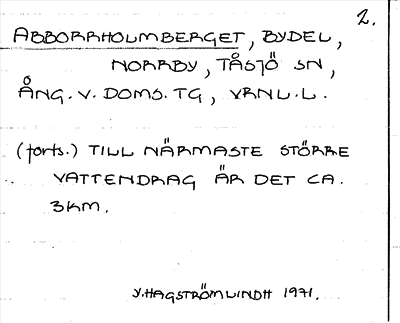 2.
ABBORRHOLMBERGET, BYDEL,
NORRBY, TÅSJÖ SN,
ÅNG. V. DOMS. TG, VRNL.L.
(forts.) TILL NÄRMASTE STÖRRE
VATTENDRAG ÄR DET CA.
3KM.
Y.HAGSTRÖMLINDH 1971.